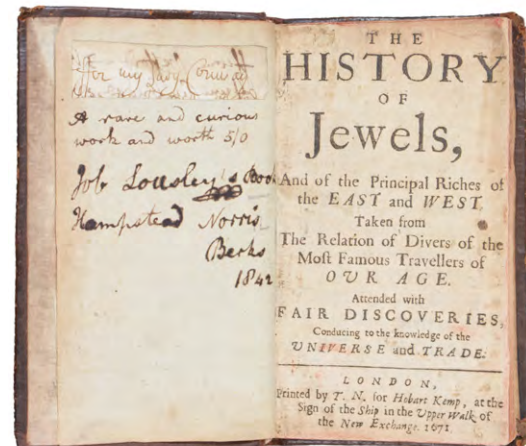 For my Lady
A rare and curious
work and worth 5/0
Job Lousley's Book
Hampstead Norris
Berks
1842
THE
HISTORY
OF
Jewels,
And of the Principal Riches of
the EAST and WEST
Taken from
The Relation of Divers of the
Most Famous Travellers of
OUR AGE.
Attended with
FAIR DISCOVERIES,
Conducing to the knowledge of the
UNIVERSE and TRADE.
LONDON,
Printed by T. N. for Hobart Kemp, at the
Sign of the Ship in the Upper Walk of
the New Exchange. 1671.